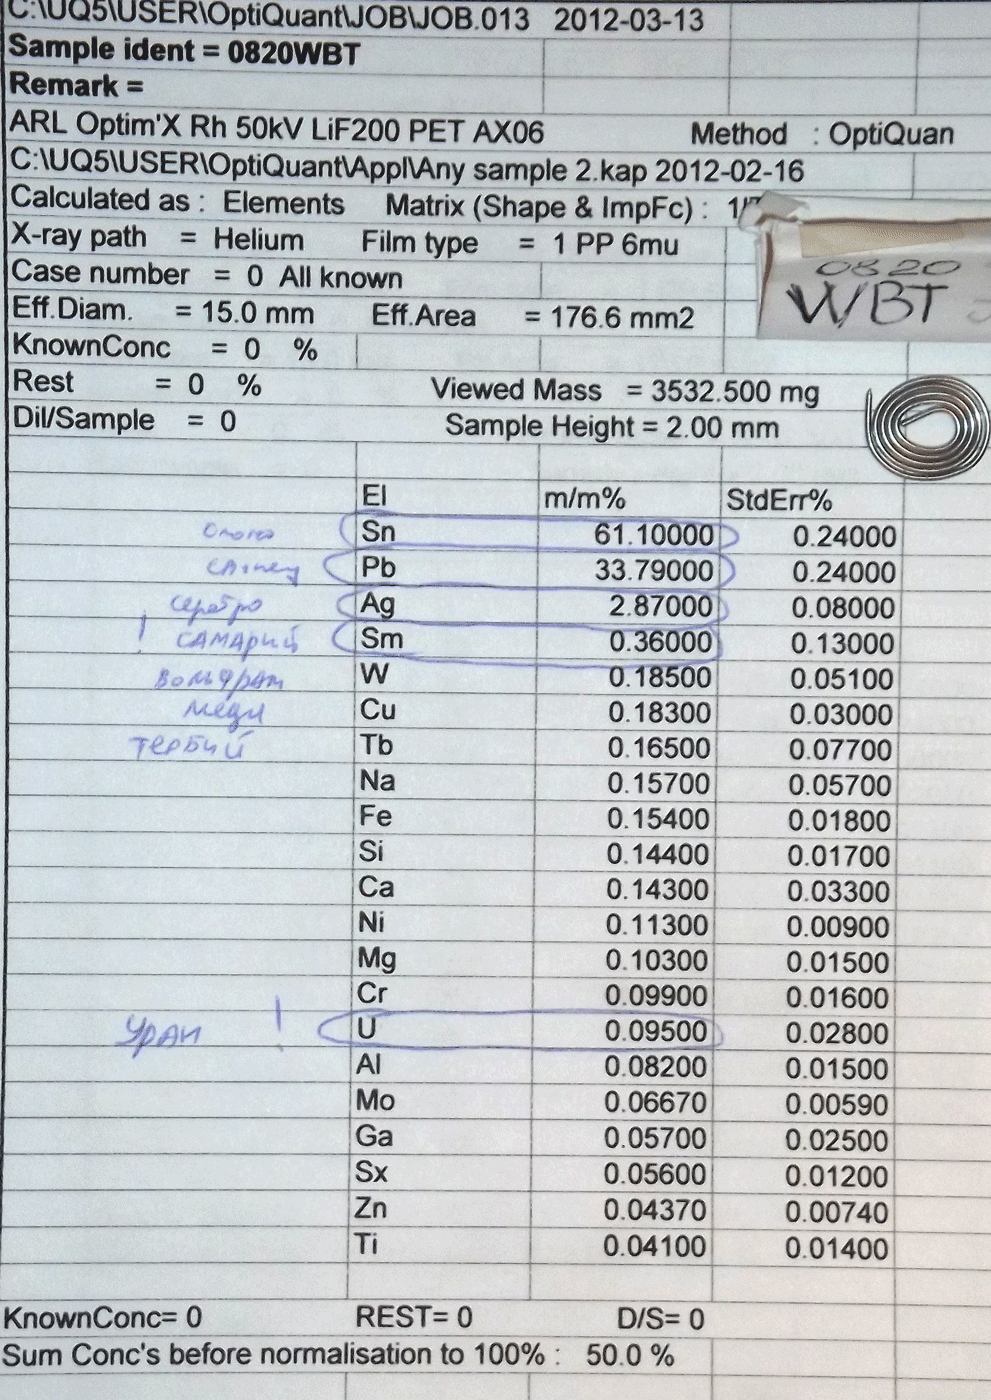 C:\UQ5\USER\OptiQuant\JOB\JOB.013 2012-03-13
Sample ident = 0820WBT
Remark =
ARL Optim'X Rh 50kV LiF200 PET AX06 Method : OptiQuan
C:\UQ5\USER\OptiQuant\Appl\Any sample 2.kap 2012-02-16
Calculated as : Elements Matrix (Shape & ImpFc) : 1/
X-ray path = Helium Film type = 1 PP 6mu
0820
Case number = 0 All known
WBT
Eff.Diam. = 15.0 mm Eff.Area = 176.6 mm2
KnownConc = 0 %
Rest = 0 % Viewed Mass = 3532.500 mg
Dil/Sample = 0 Sample Height = 2.00 mm
El m/m% StdErr%
олово Sn 61.10000 0.24000
свинец Pb 33.79000 0.24000
серебро Ag 2.87000 0.08000
! САМАРИЙ Sm 0.36000 0.13000
вольфрам W 0.18500 0.05100
медь Cu 0.18300 0.03000
тербий Tb 0.16500 0.07700
Na 0.15700 0.05700
Fe 0.15400 0.01800
Si 0.14400 0.01700
Ca 0.14300 0.03300
Ni 0.11300 0.00900
Mg 0.10300 0.01500
Cr 0.09900 0.01600
Уран ! U 0.09500 0.02800
Al 0.08200 0.01500
Mo 0.06670 0.00590
Ga 0.05700 0.02500
Sx 0.05600 0.01200
Zn 0.04370 0.00740
Ti 0.04100 0.01400
KnownConc= 0 REST= 0 D/S= 0
Sum Conc's before normalisation to 100% : 50.0 %